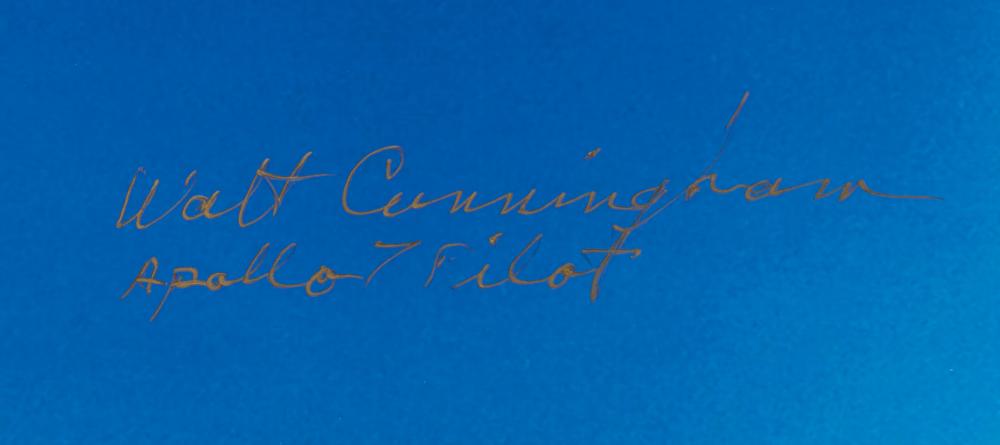 Walt Cunningham
Apollo 7 Pilot